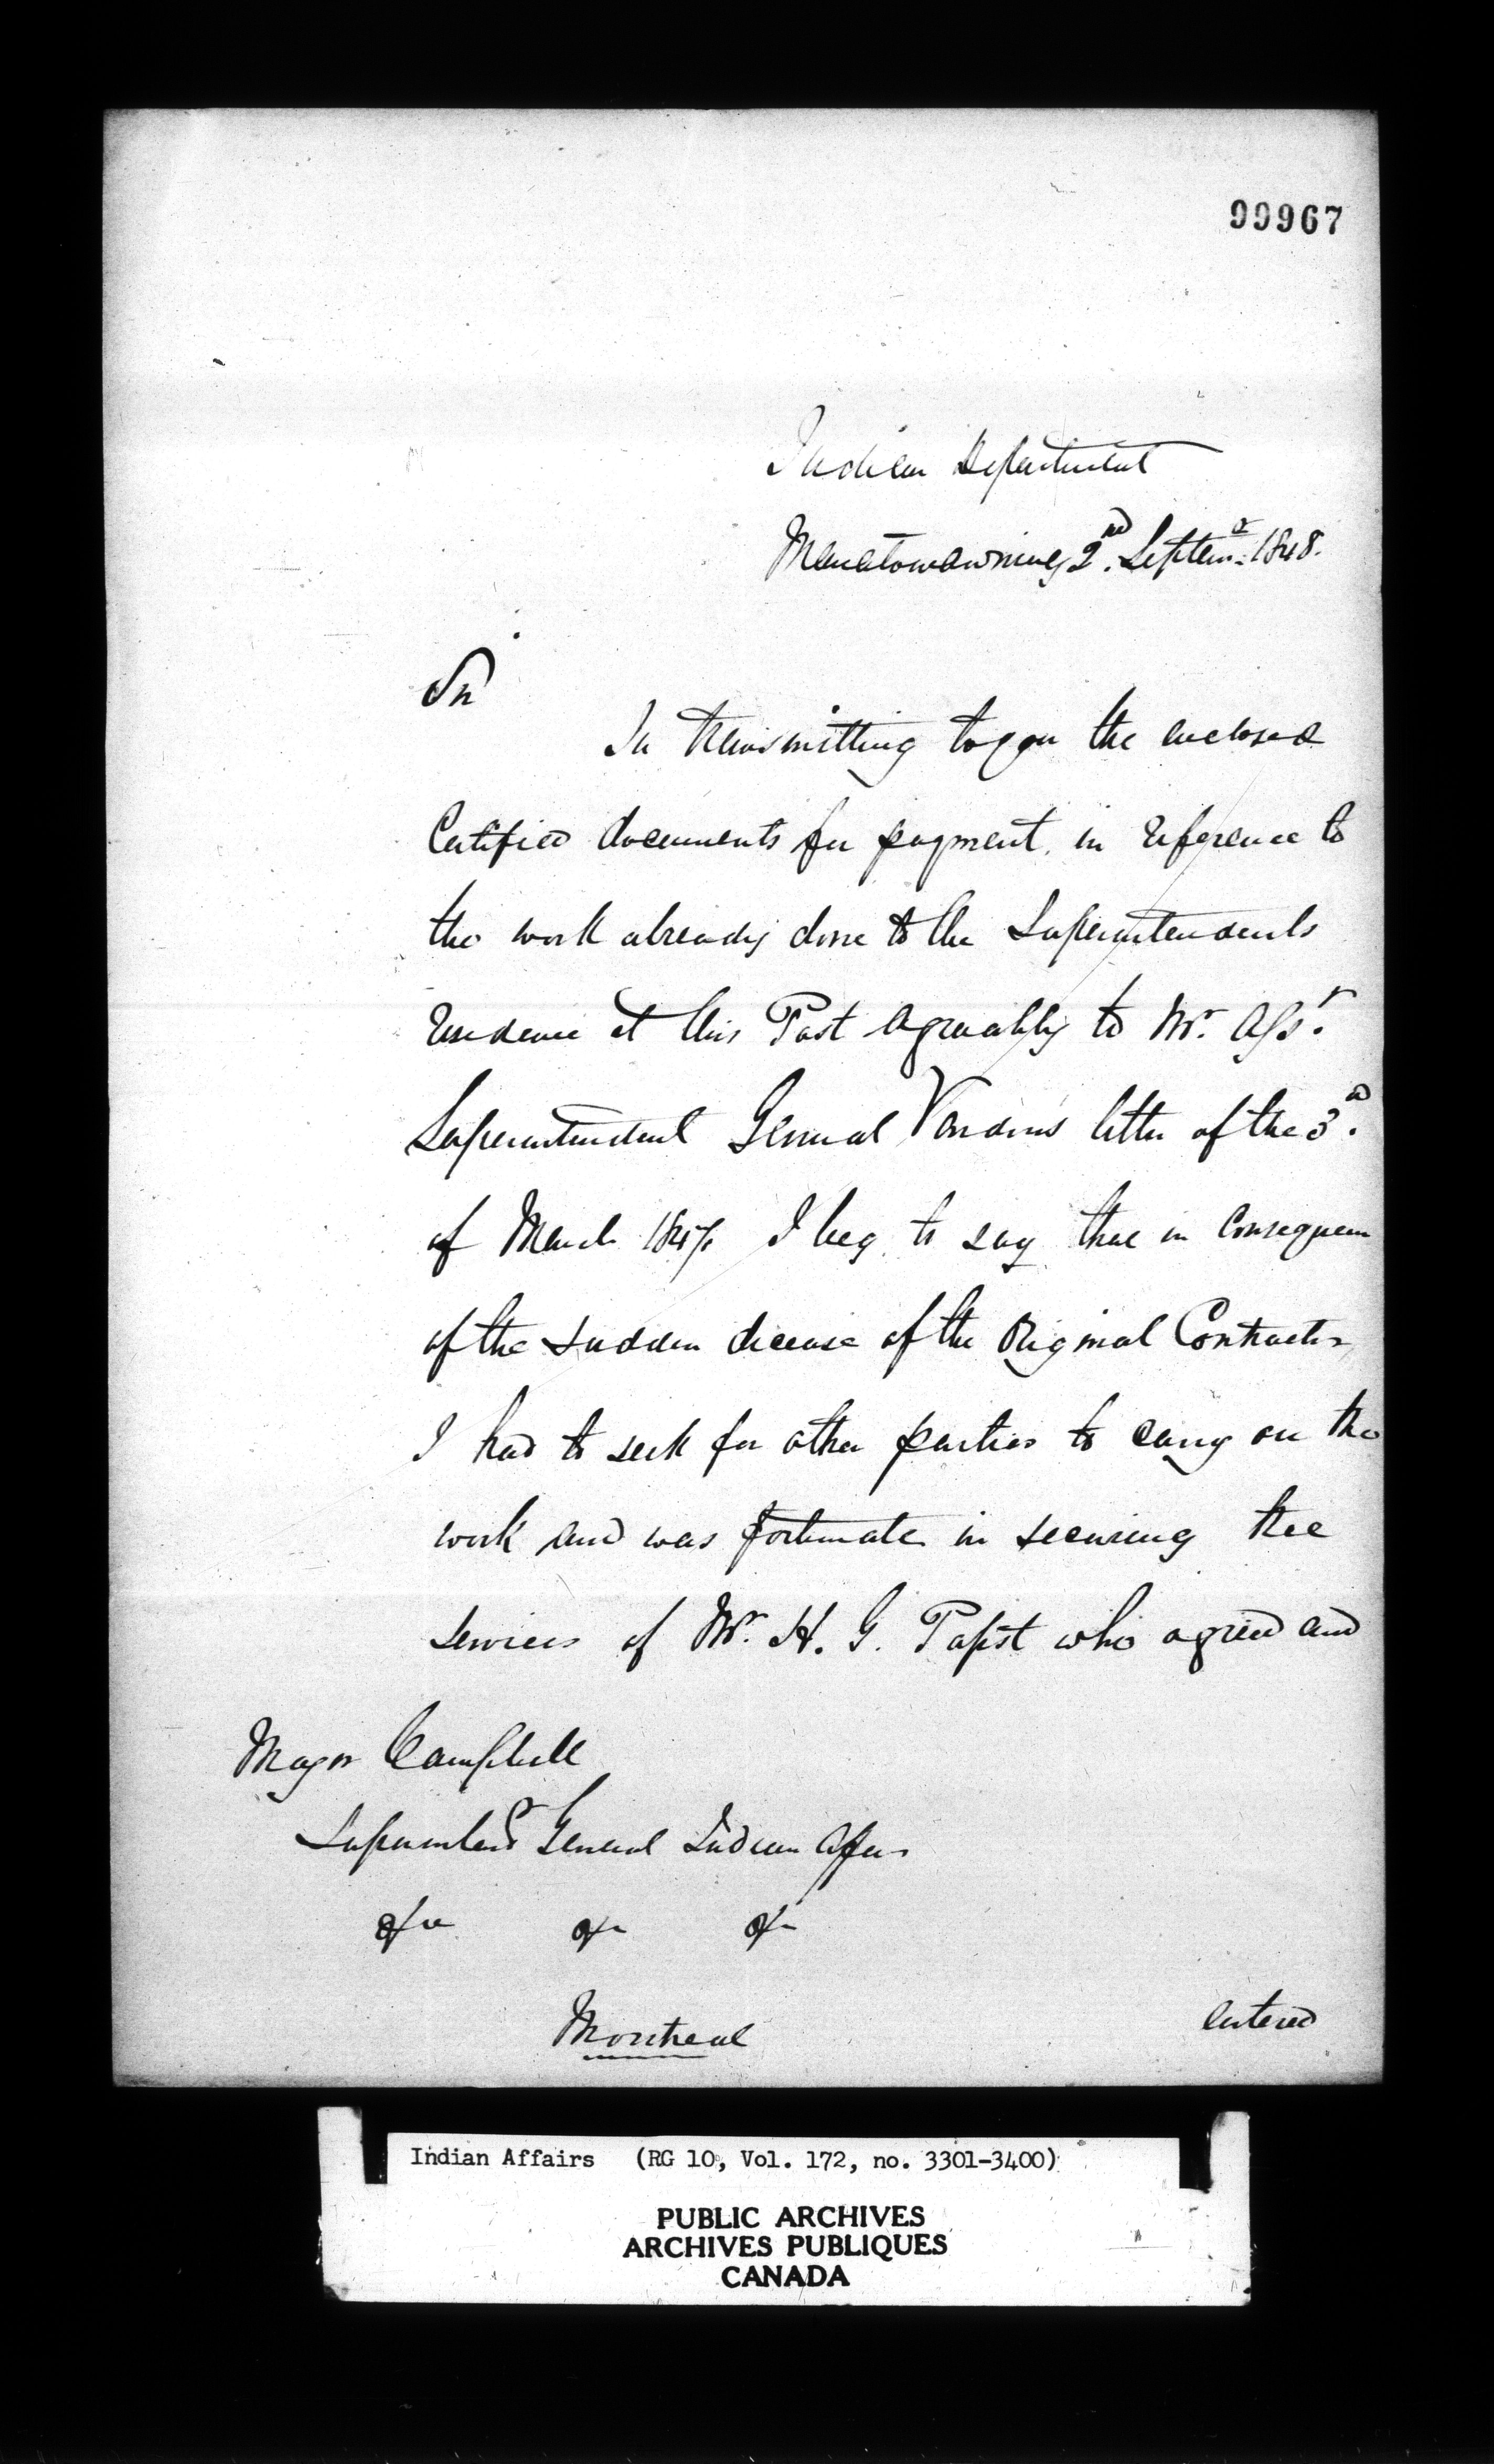 99967
Indian Department
Manatowawning 2nd. Septemr. 1848.
Sir
In transmitting to you the enclosed
Certified documents for payment in reference to
the work already done to the Superintendents
residence at this Post agreeably to Mr. Asst.
Superintendent General Vardons letter of the 3d.
of March 1847. I beg to say that in Consequence
of the sudden decease of the Original Contractor
I had to seek for other parties to carry on the
work and was fortunate in securing the
services of Mr. H. G. Papst who agreed and
Major Campbell
Superintendt General Indian Affairs
&c &c &c
Montreal
Entered
Indian Affairs (RG 10, Vol. 172, no. 3301-3400)
PUBLIC ARCHIVES
ARCHIVES PUBLIQUES
CANADA